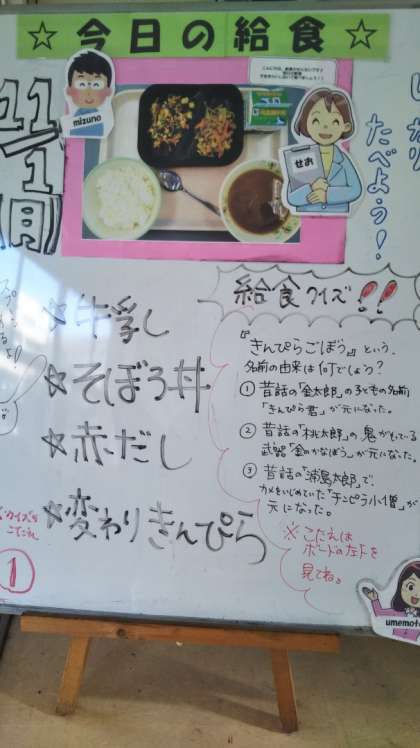 ☆今日の給食☆
11/1(月)
mizuno
せお
たべよう!
☆牛乳
☆そぼろ丼
☆赤だし
☆変わりきんぴら
給食クイズ!!
『きんぴらごぼう』という、
名前の由来は何でしょう?
① 昔話の「金太郎」の子どもの名前
「きんぴら君」が元になった。
② 昔話の「桃太郎」の鬼がもっている
武器「金のかなぼう」が元になった。
③ 昔話の「浦島太郎」で、
カメをいじめていた「チンピラ小僧」が
元になった。
※こたえは
ボードの左下を
見てね。
クイズの
こたえ
①
umemoto